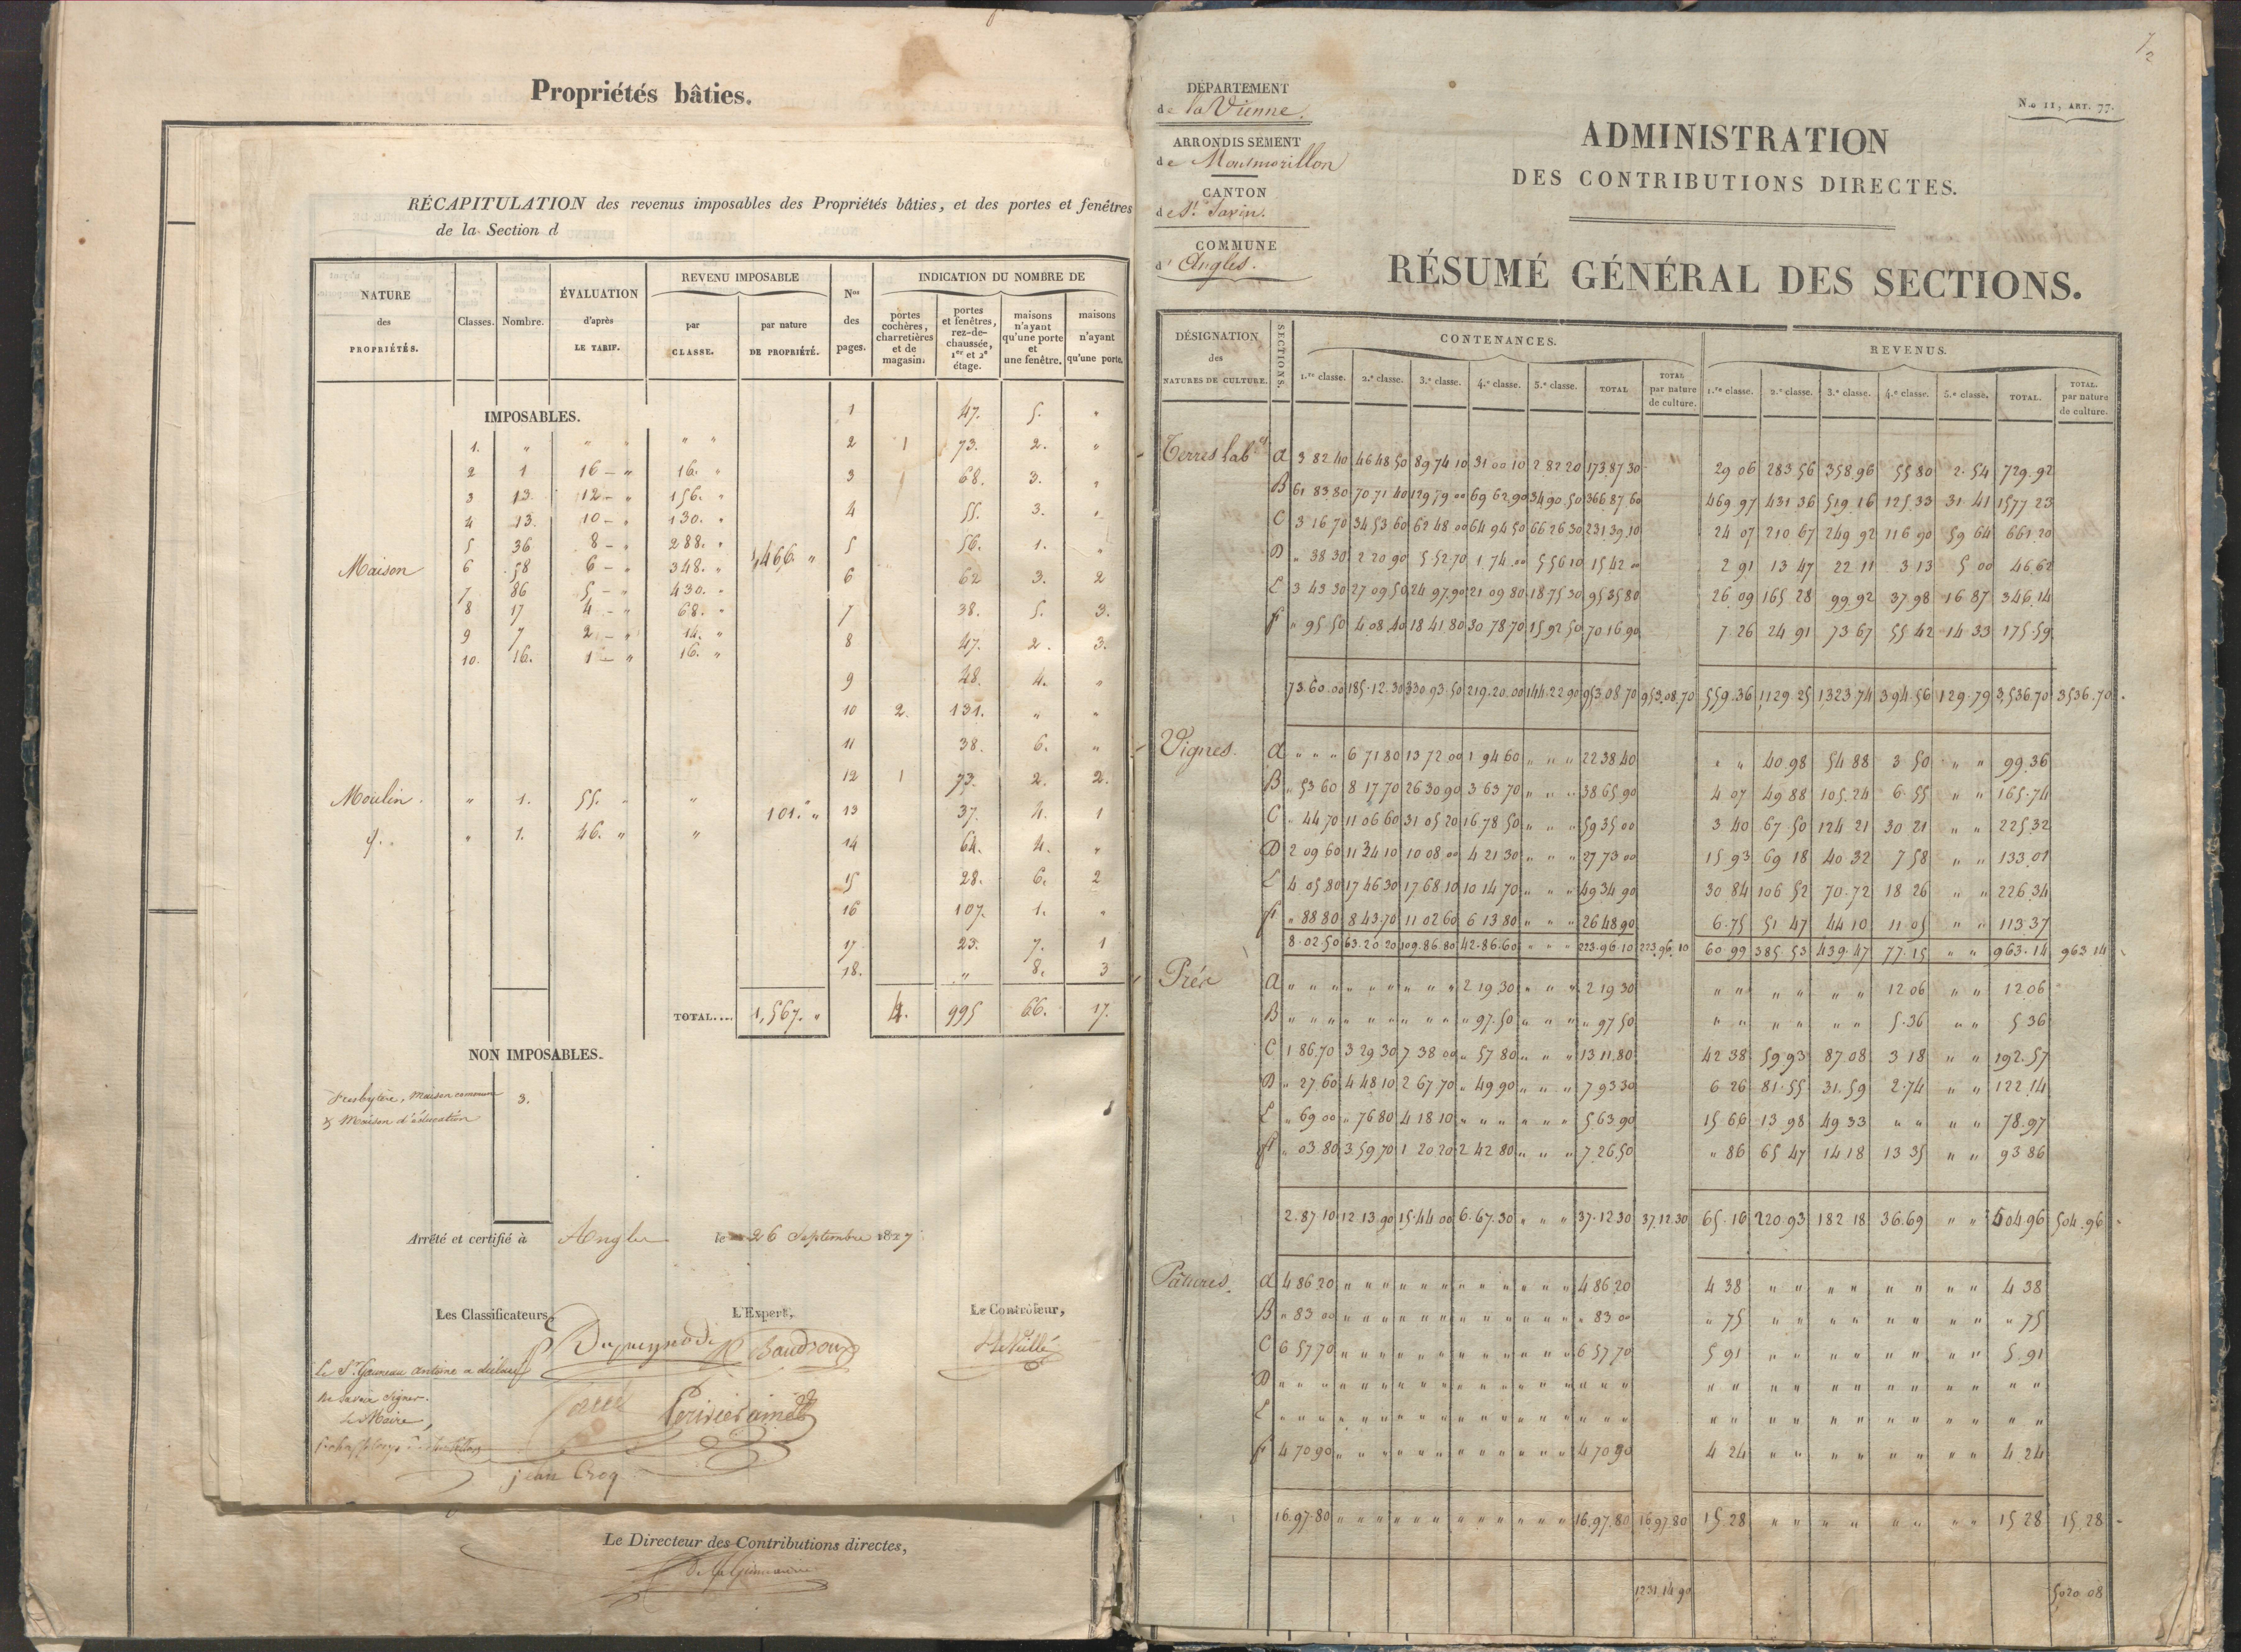 Propriétés bâties.
RÉCAPITULATION des revenus imposables des Propriétés bâties, et des portes et fenêtres
de la Section d
NATURE des PROPRIÉTÉS. Classes. Nombre. ÉVALUATION d'après LE TARIF. REVENU IMPOSABLE par CLASSE. par nature DE PROPRIÉTÉ. Nos des pages. INDICATION DU NOMBRE DE portes cochères, charretières et de magasin. portes et fenêtres, rez-de-chaussée, 1er et 2e étage. maisons n'ayant qu'une porte et une fenêtre. maisons n'ayant qu'une porte.
IMPOSABLES.
1 47. 5. "
1. " " " " " 2 1 73. 2. "
2 1 16 - " 16. " 3 68. 3. "
3 13. 12 - " 156. "
4 13. 10 - " 130. " 4 55. 3. "
5 36 8 - " 288. " 5 56. 1. "
Maison 6 58 6 - " 348. " 1,466. "
7 86 5 - " 430. " 6 62 3. 2
8 17 4 - " 68. " 7 38. 5. 3.
9 7 2 - " 14. " 8 47. 2. 3.
10. 16. 1 - " 16. "
9 48. 4. "
10 2. 131. " "
11 38. 6. "
12 1 73. 2. 2.
Moulin. " 1. 55. " " 101. " 13 37. 4. 1
" 1. 46. " " 14 64. 4. "
15 28. 6. 2
16 107. 1. "
17 23. 7. 1
18. " 8. 3
TOTAL.... 1,567. " 4. 995 66. 17.
NON IMPOSABLES.
Presbytère, Maison commune 3.
& Maison d'éducation
Arrêté et certifié à Angles le 26 Septembre 1827
Les Classificateurs, L'Expert, Le Contrôleur,
Dupuynode Baudroux
Le Sr. Gauneau Antoine a déclaré
Ne Savoir Signer.
Le Maire,
Perivier ainé
jean Croq
Le Directeur des Contributions directes,
DÉPARTEMENT
de la Vienne.
ARRONDISSEMENT
de Montmorillon
CANTON
de St. Savin.
COMMUNE
d' Angles.
N.o 11, ART. 77.
ADMINISTRATION
DES CONTRIBUTIONS DIRECTES.
RÉSUMÉ GÉNÉRAL DES SECTIONS.
DÉSIGNATION des NATURES DE CULTURE. SECTIONS. CONTENANCES. 1.re classe. 2.e classe. 3.e classe. 4.e classe. 5.e classe. TOTAL TOTAL par nature de culture. REVENUS. 1.re classe. 2.e classe. 3.e classe. 4.e classe. 5.e classe. TOTAL. TOTAL. par nature de culture.
Terres lables A 3 82 40 46 48 50 89 74 10 31 00 10 2 82 20 173 87 30 29 06 283 56 358 96 55 80 2 54 729.92
B 61 83 80 70 71 40 129 79 00 69 62 90 34 90 50 366 87 60 469 97 431 36 519 16 125 33 31 41 1577 23
C 3 16 70 34 53 60 62 48 00 64 94 50 66 26 30 231 39 10 24 07 210 67 249 92 116 90 59 64 661 20
D " 38 30 2 20 90 5 52 70 1 74 00 5 56 10 15 42 00 2 91 13 47 22 11 3 13 5 00 46.62
E 3 43 30 27 09 50 24 97 90 21 09 80 18 75 30 95 35 80 26 09 165 28 99 92 37 98 16 87 346.14
F " 95 50 4 08 40 18 41 80 30 78 70 15 92 50 70 16 90 7 26 24 91 73 67 55 42 14 33 175.59
73.60.00 185.12.30 330.93.50 219.20.00 144.22.90 953.08.70 953.08.70 559.36 1129 25 1323 74 394.56 129.79 3,536 70 3536.70
Vignes. A " " " 6 71 80 13 72 00 1 94 60 " " " 22 38 40 " " 40.98 54 88 3 50 " " 99.36
B " 53 60 8 17 70 26 30 90 3 63 70 " " " 38 65 90 4 07 49 88 105.24 6.55 " " 165.74
C " 44 70 11 06 60 31 05 20 16 78 50 " " " 59 35 00 3 40 67 50 124 21 30 21 " " 225.32
D 2 09 60 11 34 10 10 08 00 4 21 30 " " " 27 73 00 15 93 69 18 40 32 7 58 " " 133.01
E 4 05 80 17 46 30 17 68 10 10 14 70 " " " 49 34 90 30 84 106 52 70.72 18 26 " " 226.34
F " 88 80 8 43 70 11 02 60 6 13 80 " " " 26 48 90 6.75 51 47 44 10 11.05 " " 113.37
8.02.50 63.20 20 109.86.80 42.86.60 " " " 223.96 10 223.96.10 60 99 385.53 439.47 77.15 " " 963.14 963 14
Prés A " " " " " " " " " 2 19 30 " " " 2 19 30 " " " " " " 12 06 " " 12.06
B " " " " " " " " " " 97.50 " " " " 97 50 " " " " " " 5.36 " " 5 36
C 1 86 70 3 29 30 7 38 00 " 57 80 " " " 13 11.80 42 38 59 93 87.08 3 18 " " 192.57
D " 27 60 4 48 10 2 67 70 " 49 90 " " " 7 93 30 6 26 81.55 31.59 2.74 " " 122.14
E " 69 00 " 76 80 4 18 10 " " " " " " 5.63.90 15 66 13 98 49 33 " " " " 78.97
F " 03.80 3.59 70 1 20 20 2 42 80 " " " 7 26.50 " 86 65 47 14 18 13 35 " " 93 86
2.87 10 12.13.90 15.44 00 6.67.30 " " " 37.12 30 37.12 30 65.16 220 93 182 18 36.69 " " 504 96 504.96
Pâtures. A 4 86 20 " " " " " " " " " " " " 4 86 20 4 38 " " " " " " " " 4 38
B " 83 00 " " " " " " " " " " " " " 83 00 " 75 " " " " " " " " " 75
C 6 57 70 " " " " " " " " " " " " 6 57 70 5 91 " " " " " " " " 5.91
D " " " " " " " " " " " " " " " " " " " " " " " " " " " " " "
E " " " " " " " " " " " " " " " " " " " " " " " " " " " " " "
F 4 70 90 " " " " " " " " " " " " 4 70 90 4 24 " " " " " " " " 4 24
16.97.80 " " " " " " " " " " " " 16.97.80 16.97.80 15 28 " " " " " " " " 15 28 15.28
1231.14 90 5020 08